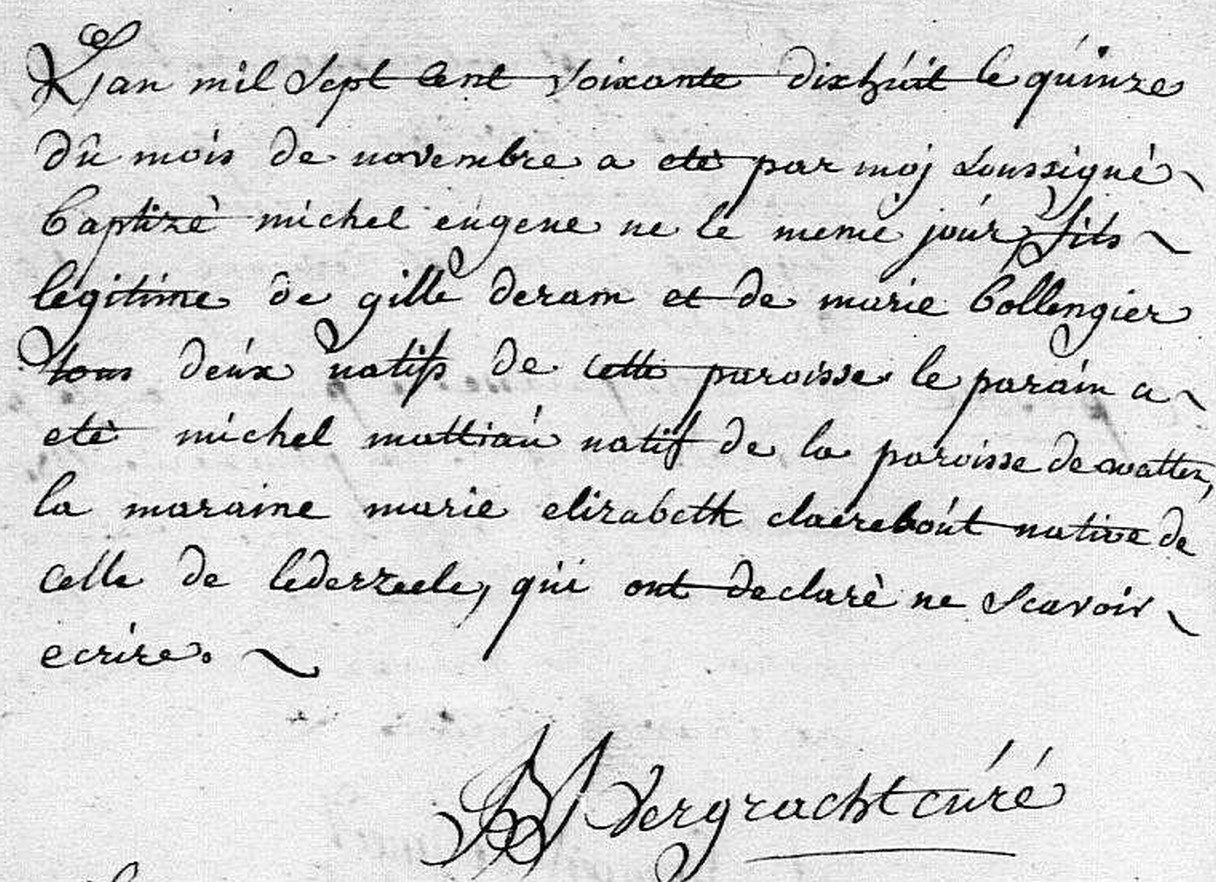 L'an mil sept cent soixante dixhuit le quinze
du mois de novembre a eté par moj soussigné
baptizé michel eugene ne le meme jour, fils
légitime de gille deram et de marie bollengier
tous deux natifs de cette paroisse le parain a
eté michel mattiau natif de la paroisse de watten,
la maraine marie elizabeth clairebout native de
celle de lederzeele, qui ont declaré ne scavoir
ecrire.
Vergracht curé